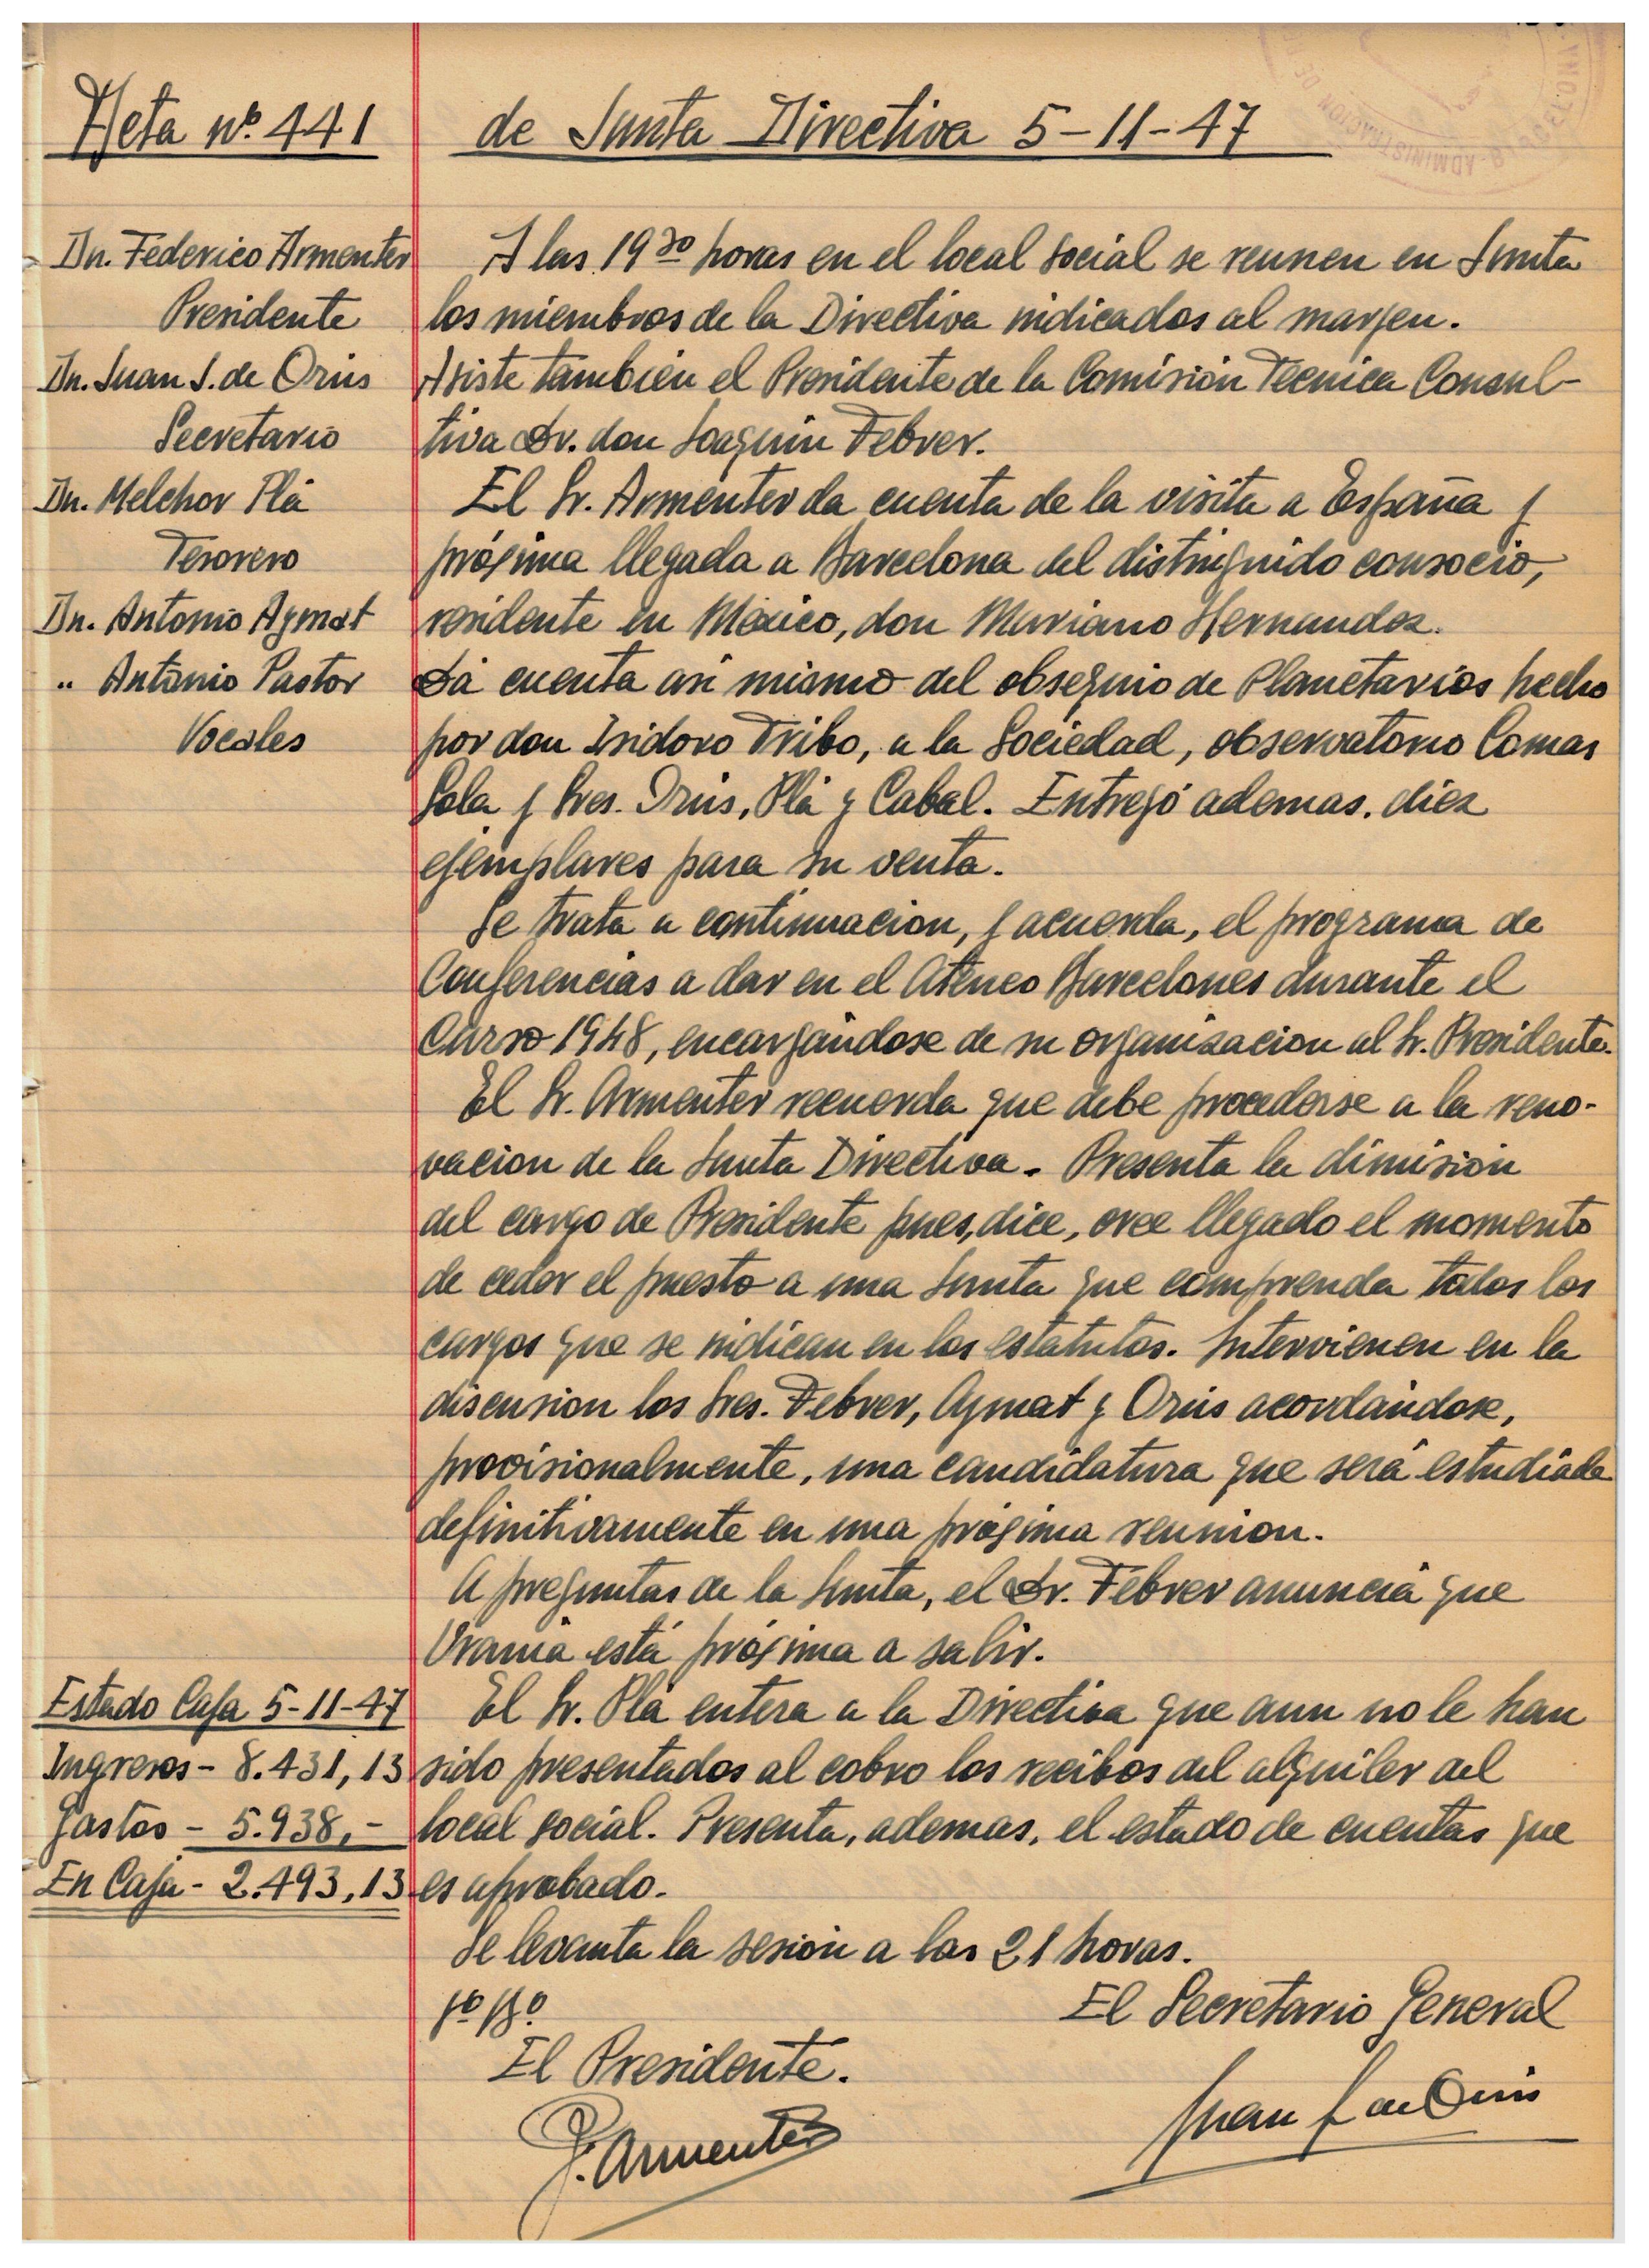 Acta nº 441 de Junta Directiva 5-11-47
Dn. Federico Armenter
Presidente
Dn. Juan J. de Orús
Secretario
Dn. Melchor Plá
Tesorero
Dn. Antonio Aymat
" Antonio Pastor
Vocales
A las 19 30 horas en el local social se reunen en Junta
los miembros de la Directiva indicados al margen.
Asiste también el Presidente de la Comisión Técnica Consul-
tiva Dr. don Joaquin Febrer.
El Sr. Armenter da cuenta de la visita a España y
próxima llegada a Barcelona del distinguido consocio,
residente en México, don Mariano Hernandez.
Dá cuenta asi mismo del obsequio de Planetarios hecho
por don Isidoro Tribo, a la Sociedad, observatorio Comas
Sola y Sres. Orús, Plá y Cabal. Entregó ademas, diez
ejemplares para su venta.
Se trata a continuacion, y acuerda, el programa de
Conferencias a dar en el Ateneo Barcelones durante el
Curso 1948, encargándose de su organizacion al Sr. Presidente.
El Sr. Armenter recuerda que debe procederse a la reno-
vacion de la Junta Directiva. Presenta la dimisión
del cargo de Presidente pues, dice, cree llegado el momento
de ceder el puesto a una Junta que comprenda todos los
cargos que se indican en los estatutos. Intervienen en la
discusion los Sres. Febrer, Aymat y Orús acordándose,
provisionalmente, una candidatura que será estudiada
definitivamente en una próxima reunion.
A preguntas de la Junta, el Dr. Febrer anuncia que
Urania está próxima a salir.
El Sr. Plá entera a la Directiva que aun no le han
sido presentados al cobro los recibos del alquiler del
local social. Presenta, ademas, el estado de cuentas que
es aprobado.
Estado Caja 5-11-47
Ingresos - 8.431,13
Gastos - 5.938,-
En Caja - 2.493,13
Se levanta la sesión a las 21 horas.
Vº Bº
El Presidente.
F. Armenter
El Secretario General
Juan J de Orús